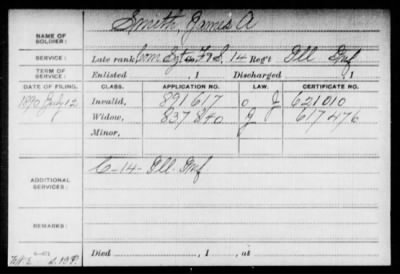 Smith, James A
NAME OF SOLDIER:
SERVICE: Late rank, Com Sgt F&S, 14 Reg't Ill Inf
TERM OF SERVICE: Enlisted , 1 Discharged , 1
DATE OF FILING. CLASS. APPLICATION NO. LAW. CERTIFICATE NO.
1890 July 12 Invalid, 891617 J 621010
Widow, 837840 J 617476
Minor,
ADDITIONAL SERVICES: C-14-Ill. Inf
REMARKS:
Died , 1 , at